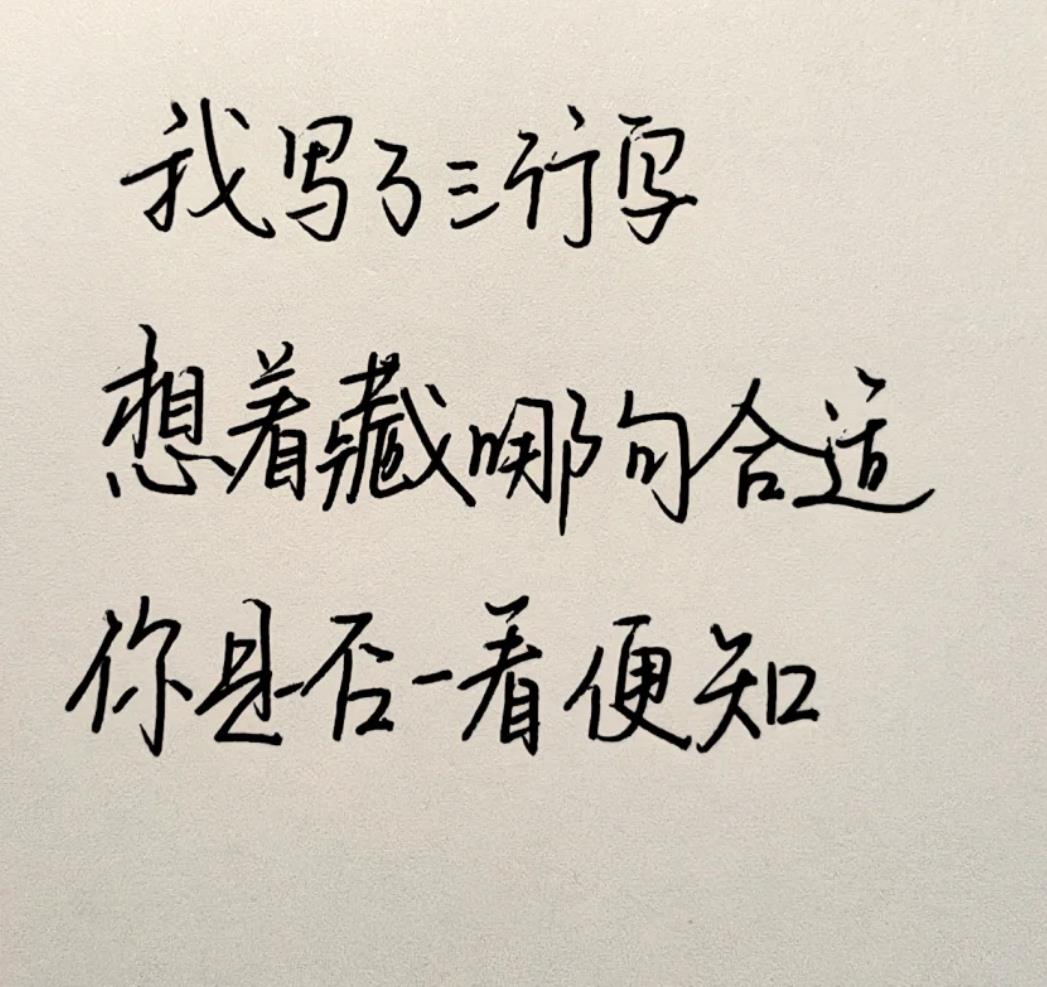 我写了三行字
想着藏哪句合适
你是否一看便知